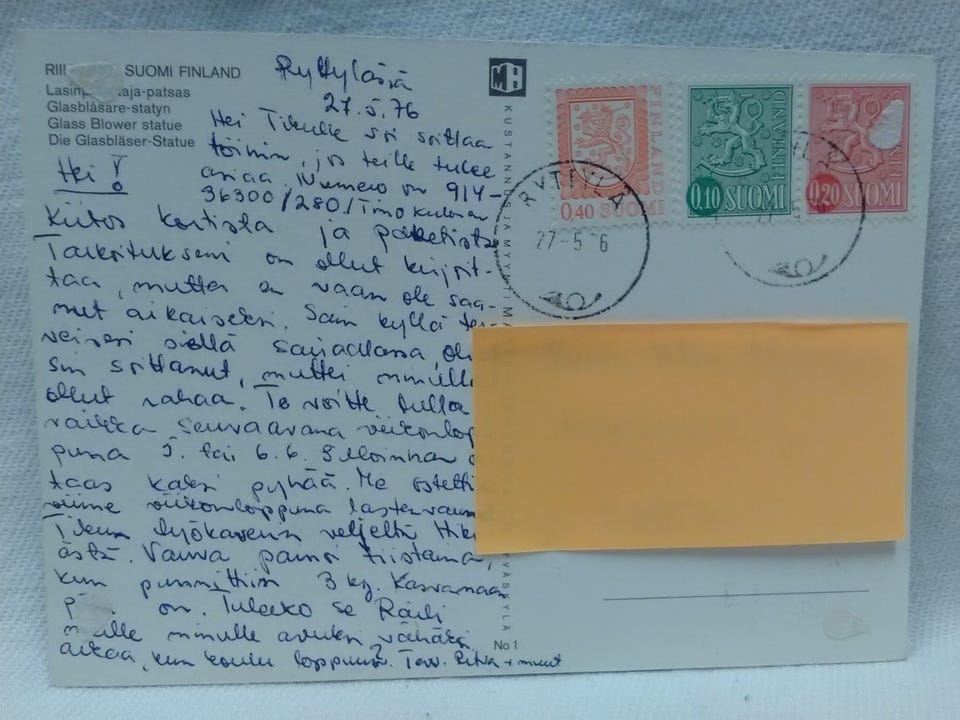 RII SUOMI FINLAND
Lasinp aja-patsas
Glasbläsare-statyn
Glass Blower statue
Die Glasbläser-Statue
Ryttylässä
27.5.76
Hei Tikulle soittaa
töihin, jos teille tulee
asiaa Numero on 914-
36300/280/Timo
Hei!
Kiitos kortista ja paketista
Tarkoitukseni on ollut kirjoit-
taa, mutta en vaan ole saa-
nut aikaiseksi. Sain kyllä ter-
veisesi siellä sairaalassa, oli
sin soittanut, muttei minulla
ollut rahaa. Te voitte tulla
vaikka seuraavana viikonlop
puna 5. tai 6.6. Silloinhan o
taas kaksi pyhää. Me ostetti
viime viikonloppuna lastenvaun
Tikun työkaverin veljeltä
ästä. Vauva painoi tiistaina,
kun punnittiin 3 kg. Kasvamaan
p on. Tuleeko se Raili
meille minulle avuksi vähäksi
aikaa, kun koulu loppuu? Terv. Ritva + muut
MK
KUSTANNUS JA MYYNTI
VÄSKYLÄ
No 1
FINLAND
0,40 SUOMI
FINLAND
0,10 SUOMI
FINLAND
0,20 SUOMI
RYTTYLÄ
27-5 6